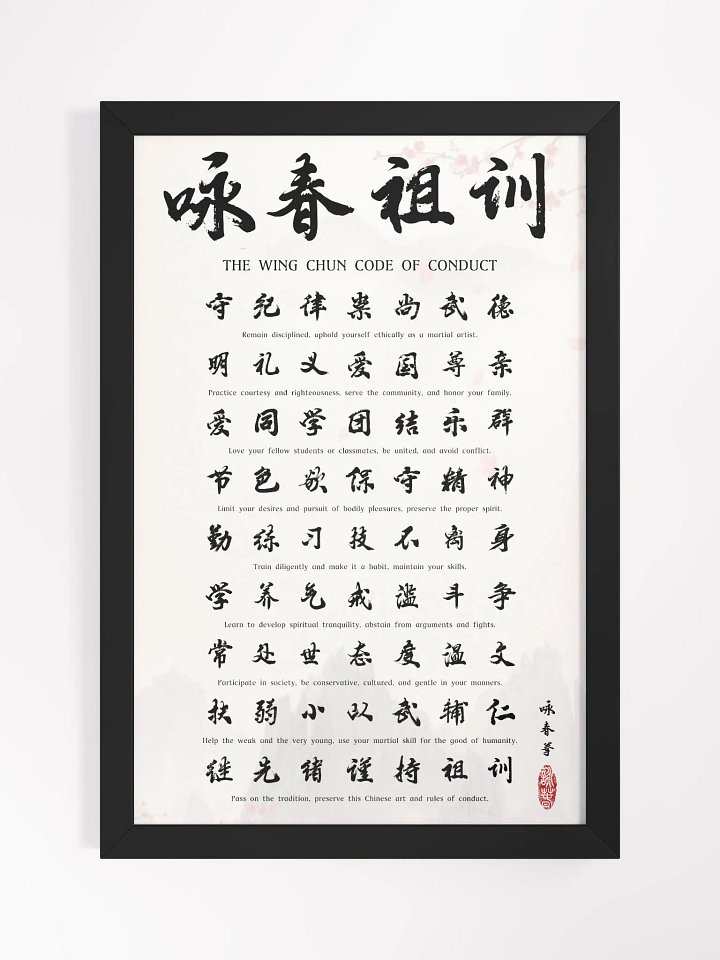 咏春祖训
THE WING CHUN CODE OF CONDUCT
守纪律崇尚武德
Remain disciplined, uphold yourself ethically as a martial artist.
明礼义爱国尊亲
Practice courtesy and righteousness, serve the community, and honor your family.
爱同学团结乐群
Love your fellow students or classmates, be united, and avoid conflict.
节色欲保守精神
Limit your desires and pursuit of bodily pleasures, preserve the proper spirit.
勤练习技不离身
Train diligently and make it a habit, maintain your skills.
学养气戒滥斗争
Learn to develop spiritual tranquility, abstain from arguments and fights.
常处世态度温文
Participate in society, be conservative, cultured, and gentle in your manners.
扶弱小以武辅仁
Help the weak and the very young, use your martial skill for the good of humanity.
继先绪谨持祖训
Pass on the tradition, preserve this Chinese art and rules of conduct.
咏春拳